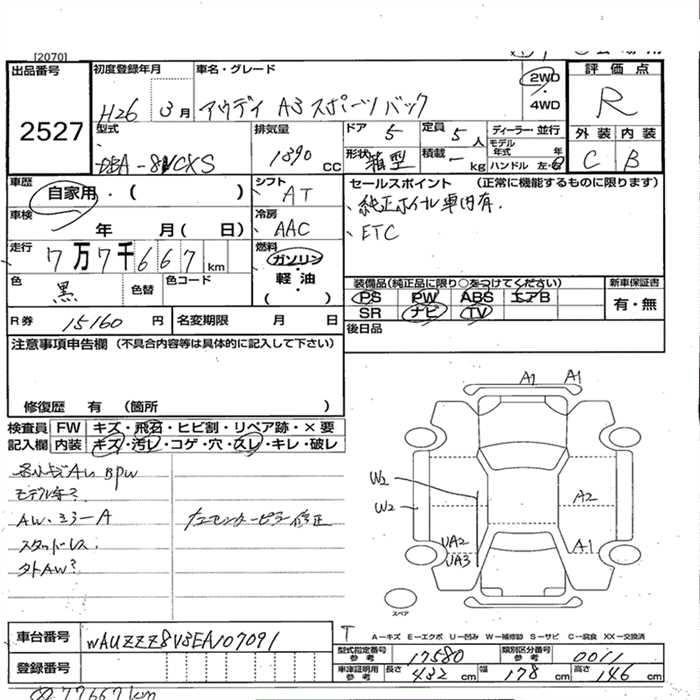 [2070]
出品番号 初度登録年月 車名・グレード 2WD 評価点
2527 H26 3月 アウディ A3 スポーツバック ・4WD R
型式 排気量 ドア 定員 ディーラー・並行 外装 内装
DBA-8VCXS 1390cc 5 5人 モデル年式 年 C B
形状 箱型 積載 - kg ハンドル 左・右
車歴 シフト セールスポイント (正常に機能するものに限ります)
自家用・( ) AT 、純正ホイル車内有.
車検 年 月( 日) 冷房 AAC 、ETC
走行 7万7千667km 燃料 ガソリン・軽油 ( )
装備品(純正品に限り○をつけてください) 新車保証書
色 黒 色替 色コード PS PW ABS エアB 有・無
SR ナビ TV
R券 15160円 名変期限 月 日 後日品
注意事項申告欄 (不具合内容等は具体的に記入して下さい)
修復歴 有 (箇所 )
A1 A1
検査員 FW キズ・飛石・ヒビ割・リペア跡・×要
記入欄 内装 キズ・汚レ・コゲ・穴・スレ・キレ・破レ
BPW
モデル年?
AW・ミラーA 左センターピラー修正
スタッドレス.
タトAW?
W2
W2 A2
UA2 A1
UA3
スペア
T A−キズ E−エクボ U−凹み W−補修跡 S−サビ C−腐食 XX−交換済
車台番号 WAUZZZ8V3EA107091
型式指定番号 参考 17580 類別区分番号 参考 0011
登録番号 車庫証明用 参考 長さ 432cm 幅 178cm 高さ 146cm
77667km